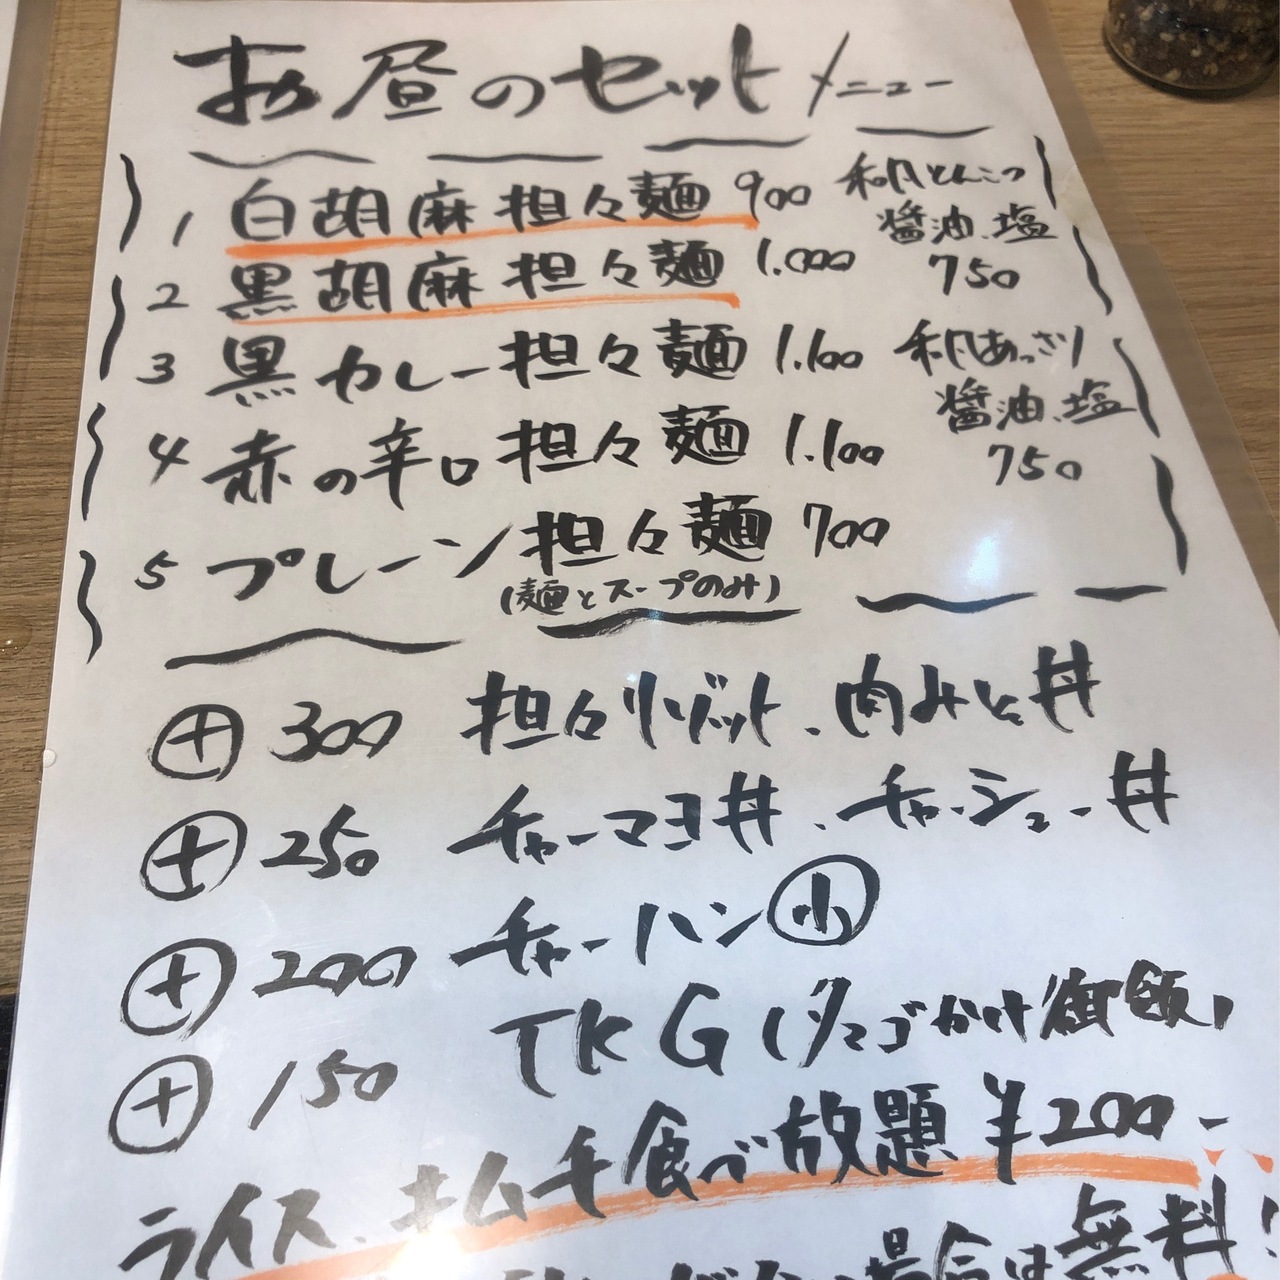 お昼のセットメニュー
1 白胡麻担々麺 900
2 黒胡麻担々麺 1.000
3 黒カレー担々麺 1.100
4 赤の辛口担々麺 1.100
5 プレーン担々麺 700
(麺とスープのみ)
和風とんこつ
醤油、塩
750
和風あっさり
醤油、塩
750
+300 担々リゾット、肉みそ丼
+250 チャーマヨ丼、チャーシュー丼
+200 チャーハン小
+150 TKG(タマゴかけ御飯)
ライス、キムチ食べ放題 ¥200-
場合は無料!